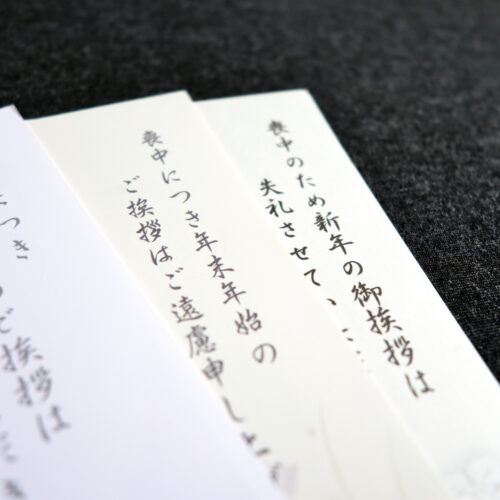 喪中のため新年の御挨拶は
失礼させてい
喪中につき年末年始の
ご挨拶はご遠慮申し上
つき
ご挨拶は